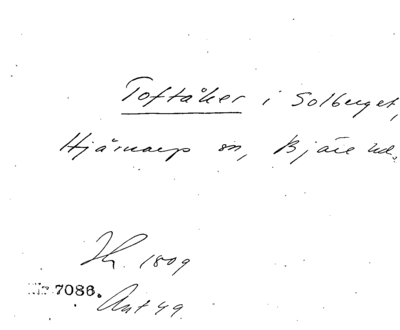 Toftåker i Solberget,
Hjärnarp sn, Bjäre hd.
Jh. 1809
Nr 7086.
Ant 49